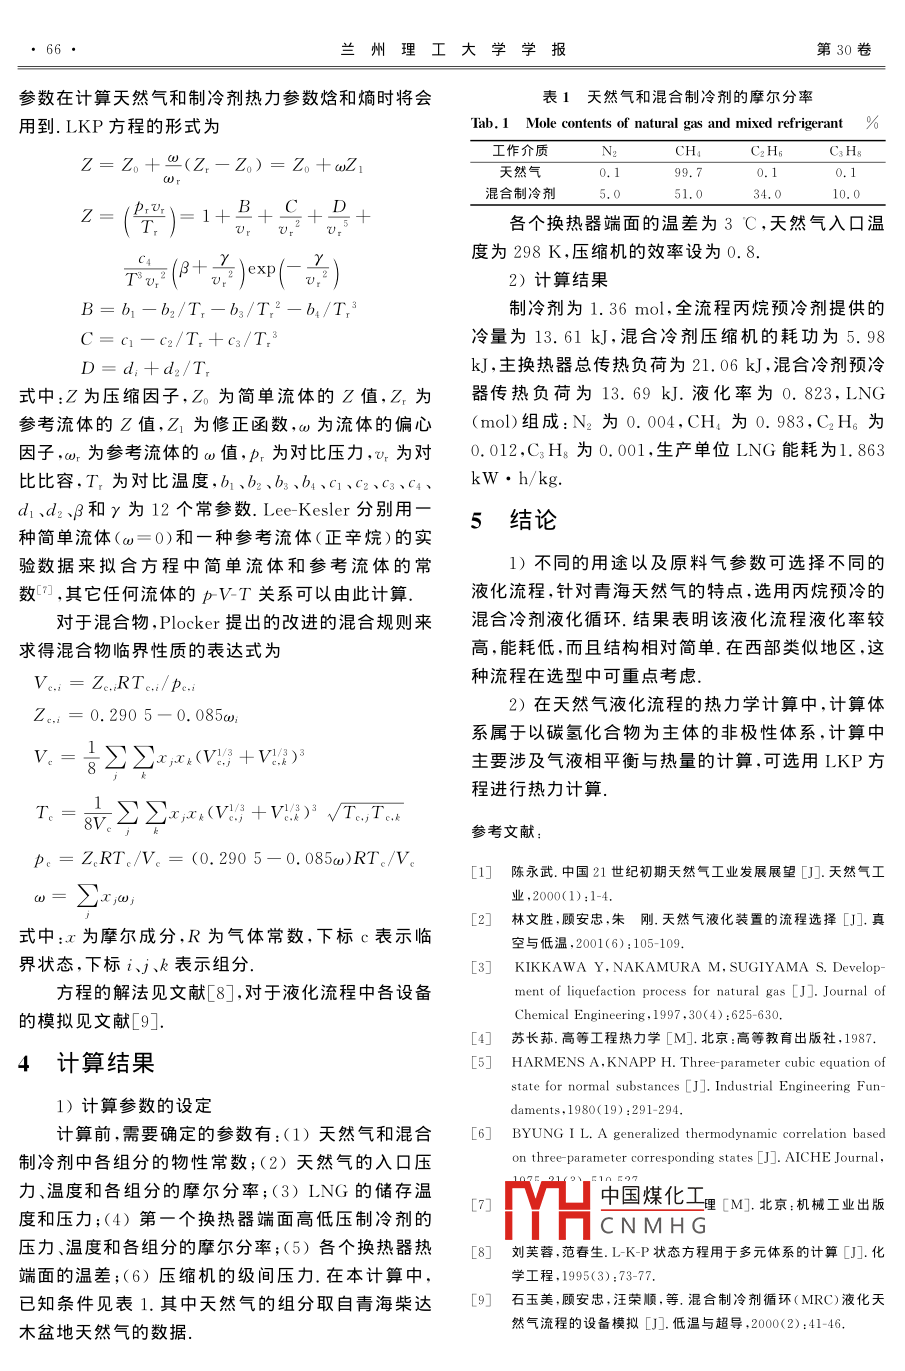 · 66 ·
兰 州 理 工 大 学 学 报
第 30 卷
参数在计算天然气和制冷剂热力参数焓和熵时将会
用到. LKP 方程的形式为
Z = Z₀ + ω/ωᵣ (Zᵣ − Z₀) = Z₀ + ωZ₁
Z = (pᵣvᵣ/Tᵣ) = 1 + B/vᵣ + C/vᵣ² + D/vᵣ⁵ +
c₄/(T³vᵣ²) (β + γ/vᵣ²) exp(− γ/vᵣ²)
B = b₁ − b₂/Tᵣ − b₃/Tᵣ² − b₄/Tᵣ³
C = c₁ − c₂/Tᵣ + c₃/Tᵣ³
D = dᵢ + d₂/Tᵣ
式中:Z 为压缩因子,Z₀ 为简单流体的 Z 值,Zᵣ 为
参考流体的 Z 值,Z₁ 为修正函数,ω 为流体的偏心
因子,ωᵣ 为参考流体的 ω 值,pᵣ 为对比压力,vᵣ 为对
比比容,Tᵣ 为对比温度,b₁、b₂、b₃、b₄、c₁、c₂、c₃、c₄、
d₁、d₂、β和 γ 为 12 个常参数. Lee-Kesler 分别用一
种简单流体(ω=0)和一种参考流体(正辛烷)的实
验数据来拟合方程中简单流体和参考流体的常
数[7],其它任何流体的 p-V-T 关系可以由此计算.
对于混合物,Plocker 提出的改进的混合规则来
求得混合物临界性质的表达式为
V_{c,i} = Z_{c,i}RT_{c,i}/p_{c,i}
Z_{c,i} = 0.290 5 − 0.085ωᵢ
V_c = 1/8 ∑_j ∑_k x_j x_k (V_{c,j}^{1/3} + V_{c,k}^{1/3})³
T_c = 1/(8V_c) ∑_j ∑_k x_j x_k (V_{c,j}^{1/3} + V_{c,k}^{1/3})³ √(T_{c,j}T_{c,k})
p_c = Z_cRT_c/V_c = (0.290 5 − 0.085ω)RT_c/V_c
ω = ∑_j x_jω_j
式中:x 为摩尔成分,R 为气体常数,下标 c 表示临
界状态,下标 i、j、k 表示组分.
方程的解法见文献[8],对于液化流程中各设备
的模拟见文献[9].
4 计算结果
1) 计算参数的设定
计算前,需要确定的参数有:(1) 天然气和混合
制冷剂中各组分的物性常数;(2) 天然气的入口压
力、温度和各组分的摩尔分率;(3) LNG 的储存温
度和压力;(4) 第一个换热器端面高低压制冷剂的
压力、温度和各组分的摩尔分率;(5) 各个换热器热
端面的温差;(6) 压缩机的级间压力. 在本计算中,
已知条件见表 1. 其中天然气的组分取自青海柴达
木盆地天然气的数据.
表 1 天然气和混合制冷剂的摩尔分率
Tab. 1 Mole contents of natural gas and mixed refrigerant %
工作介质 N₂ CH₄ C₂H₆ C₃H₈
天然气 0.1 99.7 0.1 0.1
混合制冷剂 5.0 51.0 34.0 10.0
各个换热器端面的温差为 3 ℃,天然气入口温
度为 298 K,压缩机的效率设为 0.8.
2) 计算结果
制冷剂为 1.36 mol,全流程丙烷预冷剂提供的
冷量为 13.61 kJ,混合冷剂压缩机的耗功为 5.98
kJ,主换热器总传热负荷为 21.06 kJ,混合冷剂预冷
器传热负荷为 13.69 kJ. 液化率为 0.823,LNG
(mol)组成:N₂ 为 0.004,CH₄ 为 0.983,C₂H₆ 为
0.012,C₃H₈ 为 0.001,生产单位 LNG 能耗为1.863
kW·h/kg.
5 结论
1) 不同的用途以及原料气参数可选择不同的
液化流程,针对青海天然气的特点,选用丙烷预冷的
混合冷剂液化循环. 结果表明该液化流程液化率较
高,能耗低,而且结构相对简单. 在西部类似地区,这
种流程在选型中可重点考虑.
2) 在天然气液化流程的热力学计算中,计算体
系属于以碳氢化合物为主体的非极性体系,计算中
主要涉及气液相平衡与热量的计算,可选用 LKP 方
程进行热力计算.
参考文献:
[1] 陈永武. 中国 21 世纪初期天然气工业发展展望 [J]. 天然气工
业,2000(1):1-4.
[2] 林文胜,顾安忠,朱 刚. 天然气液化装置的流程选择 [J]. 真
空与低温,2001(6):105-109.
[3] KIKKAWA Y,NAKAMURA M,SUGIYAMA S. Develop-
ment of liquefaction process for natural gas [J]. Journal of
Chemical Engineering,1997,30(4):625-630.
[4] 苏长荪. 高等工程热力学 [M]. 北京:高等教育出版社,1987.
[5] HARMENS A,KNAPP H. Three-parameter cubic equation of
state for normal substances [J]. Industrial Engineering Fun-
daments,1980(19):291-294.
[6] BYUNG I L. A generalized thermodynamic correlation based
on three-parameter corresponding states [J]. AICHE Journal,
1975,21(3):510-527.
[7] 理 [M]. 北京:机械工业出版
中国煤化工
CNMHG
[8] 刘芙蓉,范春生. L-K-P 状态方程用于多元体系的计算 [J]. 化
学工程,1995(3):73-77.
[9] 石玉美,顾安忠,汪荣顺,等. 混合制冷剂循环(MRC)液化天
然气流程的设备模拟 [J]. 低温与超导,2000(2):41-46.